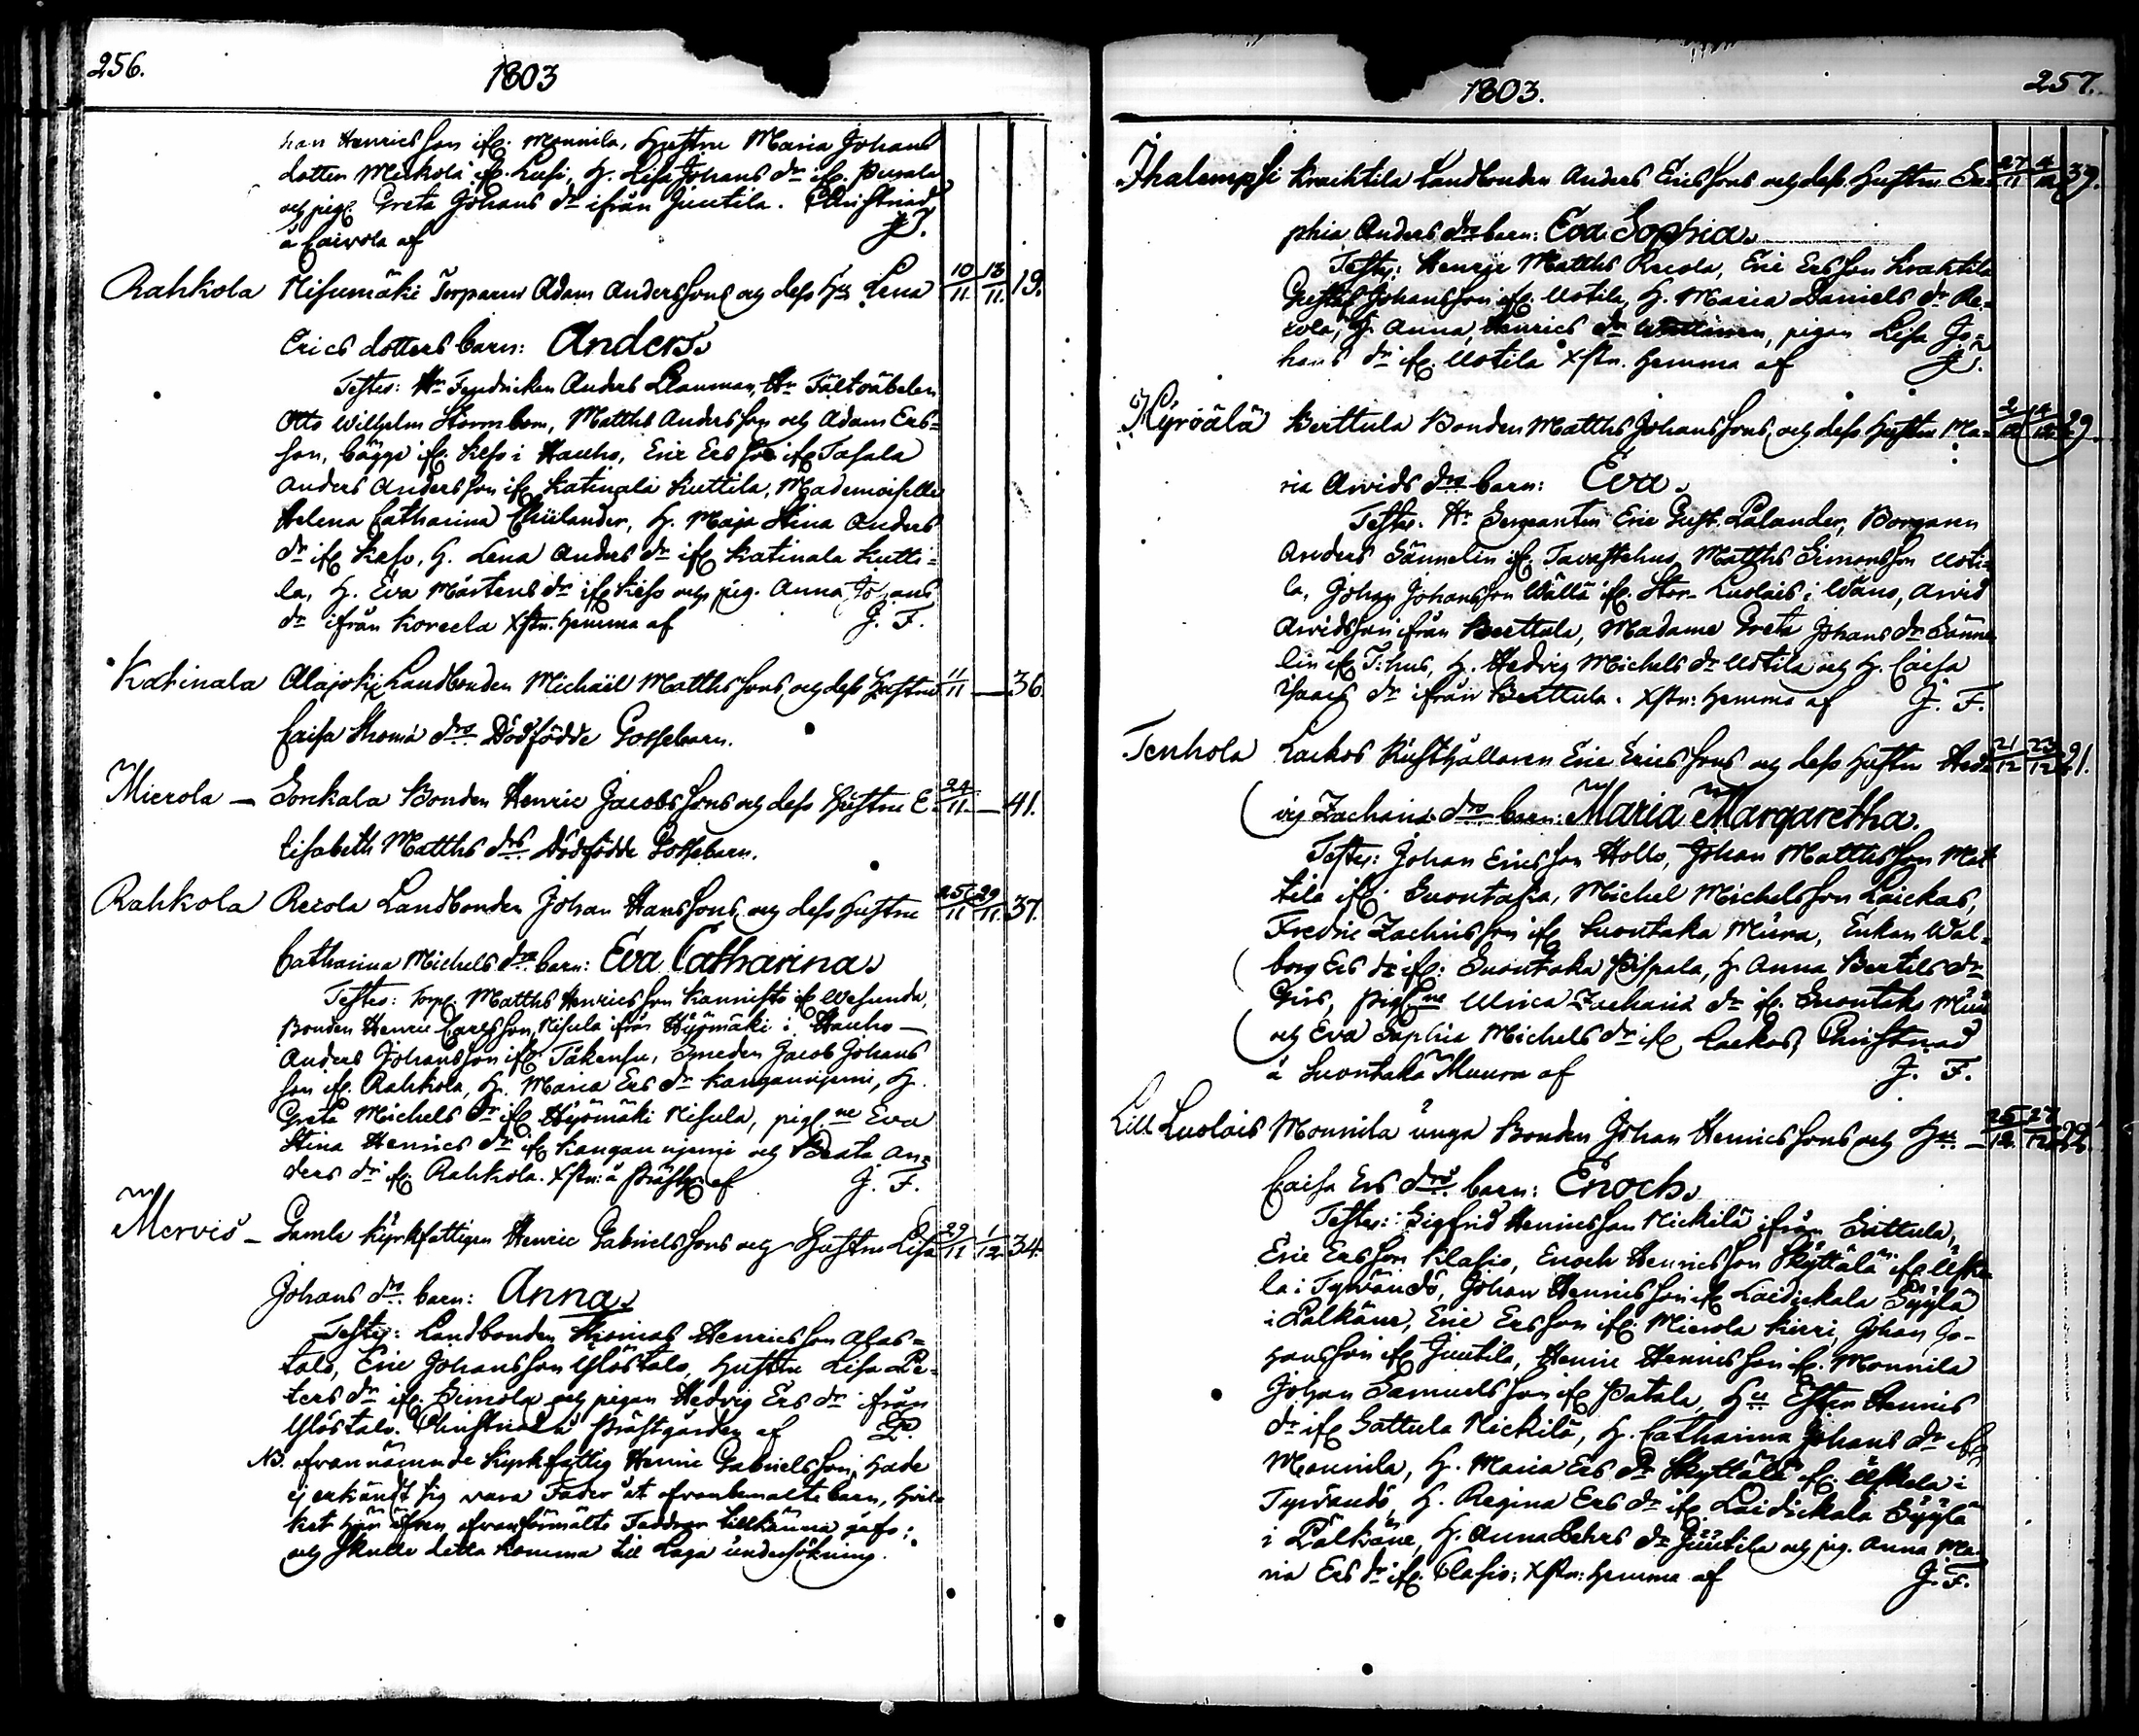 256.
1803
han Henricsson ifr. Monnila, Hustru Maria Johans
dotter Mickola ifr. Lusi, H. Lisa Johans dr ifr. Pusala
och pig. Greta Johans dr ifrån Juutila. Christnad
à Cairola af
Rahkola Nisumäki Torparen Adam Anderssons och dess Hu Lena 10/11 13/11 19.
Erics dotters barn: Anders.
Testes: Hr Fendricken Anders Clauman, Hr Fältväbelen
Otto Wilhelm Stormbom, Matths Andersson och Adam Ers=
son, bägge ifr. Keso i Hauho, Eric Ersson ifr Tasala
Anders Andersson ifr Katinala Kuttila, Mademoiselle
Helena Catharina, H. Maja Stina Anders
dr ifr Keso, H. Lena Anders dr ifr Katinala Kutti=
la, H. Eva Mårtens dr ifr Keso och pig. Anna Johans
dr ifrån Koreela Xstn. hemma af J. F.
Katinala Alajoki Landbonden Michaël Matthssons och dess Hustru 11/11 — 36.
Caisa Thomæ drs Dödfödde Gossebarn.
Mierola — Sonkala Bonden Henric Jacobssons och dess Hustru E- 24/11 — 41.
lisabeth Matths drs Dödfödde Gossebarn.
Rahkola Recola Landbonden Johan Hanssons och dess Hustru 25/11 29/11 37.
Catharina Michels drs barn: Eva Catharina.
Testes: Torp. Matths Henricsson Kannisto ifr Wesunda,
Bonden Henric Carlsson Nisula ifrån Hyömäki i Hauho —
Anders Johansson ifr. Täkensu, Smeden Jacob Johans
son ifr. Rahkola, H. Maria Ers dr Kanganniemi, H.
Greta Michels dr ifr Hyömäki Nisula, pig.ne Eva
Stina Henrics dr ifr Kanganniemi och Beata An=
ders dr ifr. Rahkola. Xstn: à Prästg. af J. F.
Mervis — Gamle Kyrkfattigen Henric Gabrielssons och Hustru Lisa 29/11 1/12 34.
Johans drs barn: Anna.
Testes: Landbonden Thomas Henricsson Alas=
talo, Eric Johansson Ylöstalo, Hustru Lisa Pe=
ters dr ifr. Simola och pigan Hedvig Ers dr ifrån
Ylöstalo. Christnad à Prästgården af
NB. ofvannämnde Kyrkfattig Henric Gabrielsson, hade
ej erkändt sig vara Fader åt ofvanbemälte barn, hvil=
ket han äfven ofvanförmälte Faddrar tillkänna gafs;
och skulle detta komma till Laga undersökning.
1803.
257.
Ihalempsi Krachtila Landbonden Anders Ericssons och dess Hustru So- 27/11 4/12 39.
phia Anders drs barn: Eva Sophia.
Testes: Henric Matths Recola, Eric Ersson Krahtila
Gustaf Johansson ifr. Uotila, H. Maria Daniels dr Re=
cola, H. Anna Henrics dr, pigan Lisa Jo=
hans dr ifr. Uotila Xstn. hemma af
Hyrvälä Berttula Bonden Matths Johanssons och dess Hustru Ma= 2/12 4/12 29.
ria Arvids drs barn: Eva.
Testes. Hr Sergeanten Eric Gust. Palander, Borgaren
Anders Sännelin ifr Tavastehus, Matths Simonsson Uoti=
la, Johan Johansson Wällä ifr. Stor-Luolais i Wånå, Arvid
Arvidsson ifrån Berttula, Madame Greta Johans dr Sänne
lin ifr T:hus, H. Hedvig Michels dr Uotila och H. Caisa
Isaacs dr ifrån Berttula. Xstn: hemma af J. F.
Tenhola Lackos Rusthållaren Eric Ericssons och dess Hustru Hed= 21/12 23/12 21.
vig Zachariæ drs barn: Maria Margaretha.
Testes: Johan Ericsson Hollo, Johan Matthsson Mat
tila ifr. Suontaka, Michel Michelsson Laickas,
Fredric Zachrisson ifr Suontaka Muura, Enkan Wal=
borg Ers dr ifr: Suontaka Pispala, H. Anna Bertils dr
pig.ne Ulrica Zachariæ dr ifr. Suontaka Muura
och Eva Sophia Michels dr ifr. Lackos, Christnad
à Suontaka Muura af J. F.
Lill Luolais Monnila unga Bonden Johan Henricssons och Hu — 25/12 27/12 22.
Caisa Ers drs barn: Enoch.
Testes: Sigfrid Henricsson Nickilä ifrån Sattula,
Eric Ersson Klasio, Enoch Henricsson Skyttälä ifr Uske
la i Tyrvändö, Johan Henricsson ifr Laidickala Syylä
i Pälkäne, Eric Ersson ifr. Mierola Kirri, Johan Jo-
hansson ifr Juutila, Henric Henricsson ifr. Monnila
Johan Samuelsson ifr Patala, Hu Ester Henrics
dr ifr Sattula Nickilä, H. Catharina Johans dr ifr
Monnila, H. Maria Ers dr Skyttälä ifr. Uskela i
Tyrvändö, H. Regina Ers dr ifr Laidickala Syylä
i Pälkäne, H. Anna dr Juutila och pig. Anna Ma=
ria Ers dr ifr. Klasio; Xstn: hemma af J. F.